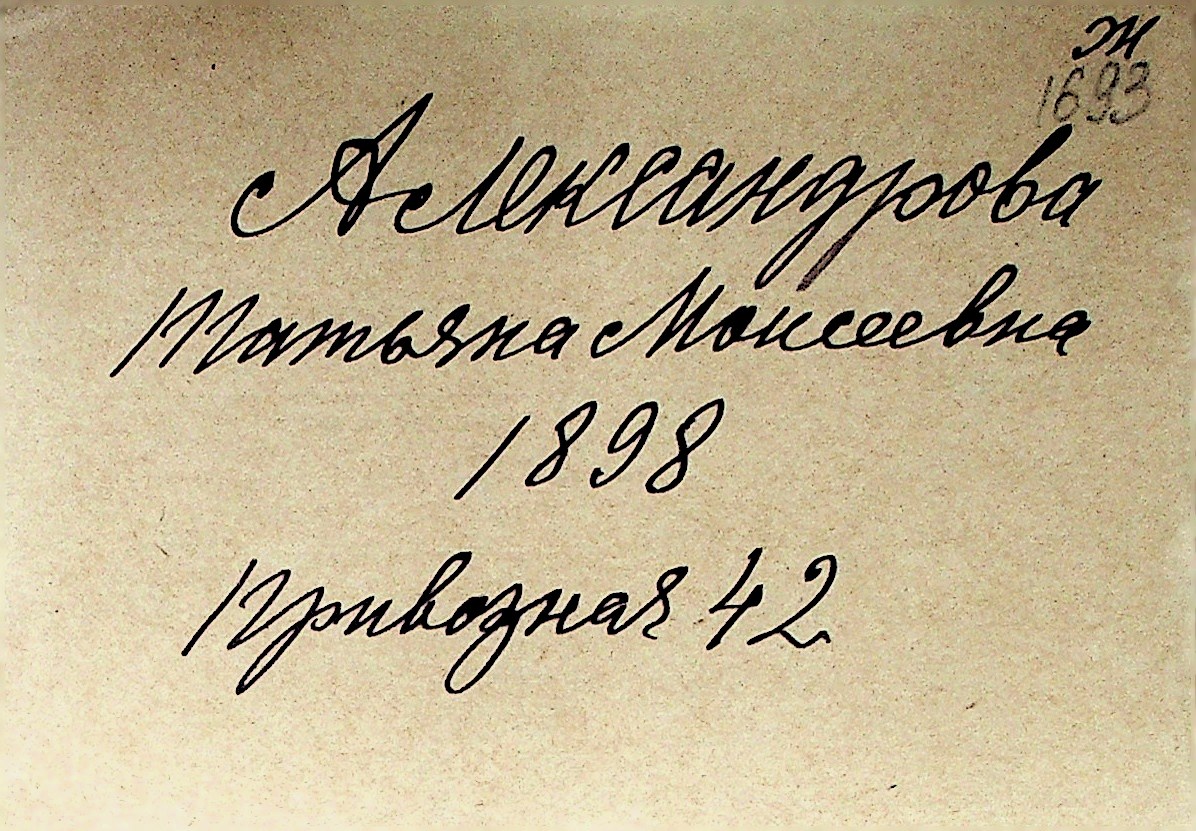 ж
1693
Александрова
Татьяна Моисеевна
1898
Привозная 42